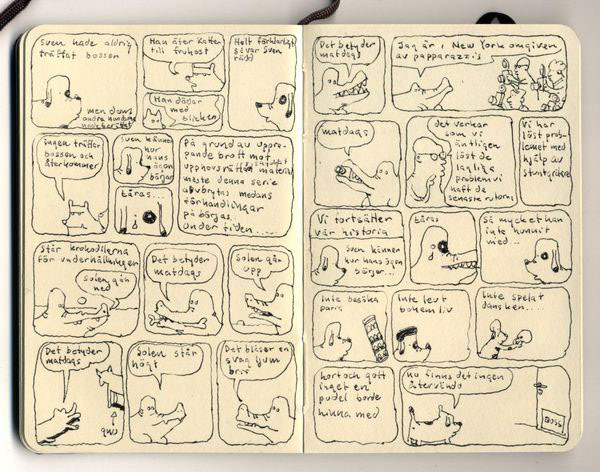 Sven hade aldrig
träffat bossen
men dom
andra hundarna
hade berättat
Han äter katter
till frukost
Han dödar
med
blicken
Helt förklarligt
så var Sven
rädd
ingen träffar
bossen och
återkommer
Sven känner
hur hans
ögon
börjar
tåras...
På grund av uppre-
pande brott mot
upphovsrätten
måste denna serie
avbrytas medans
förhandlingar
påbörjas.
Under tiden....
Står krokodilerna
för underhållningen
Solen går
ned
Det betyder
matdags
Solen går
upp
Det betyder
matdags
Solen står
högt
Det blåser en
svag ljum
bris
Det betyder
matdags
Jag är i New York omgiven
av papparazzis
matdags
det verkar
som vi
äntligen
löst de
lagliga
problem vi
haft de
senaste rutorna
Vi har
löst prob-
lemet med
hjälp av
Vi fortsätter
vår historia
Sven känner
hur hans ögon
börjar...
tåras
Så mycket han
inte hunnit
med...
Inte besöka
paris
Inte levt
bohemliv
Inte spelat
dansken....
kort och gott
inget en
pudel borde
hinna med
nu finns det ingen
återvändo
BOSS